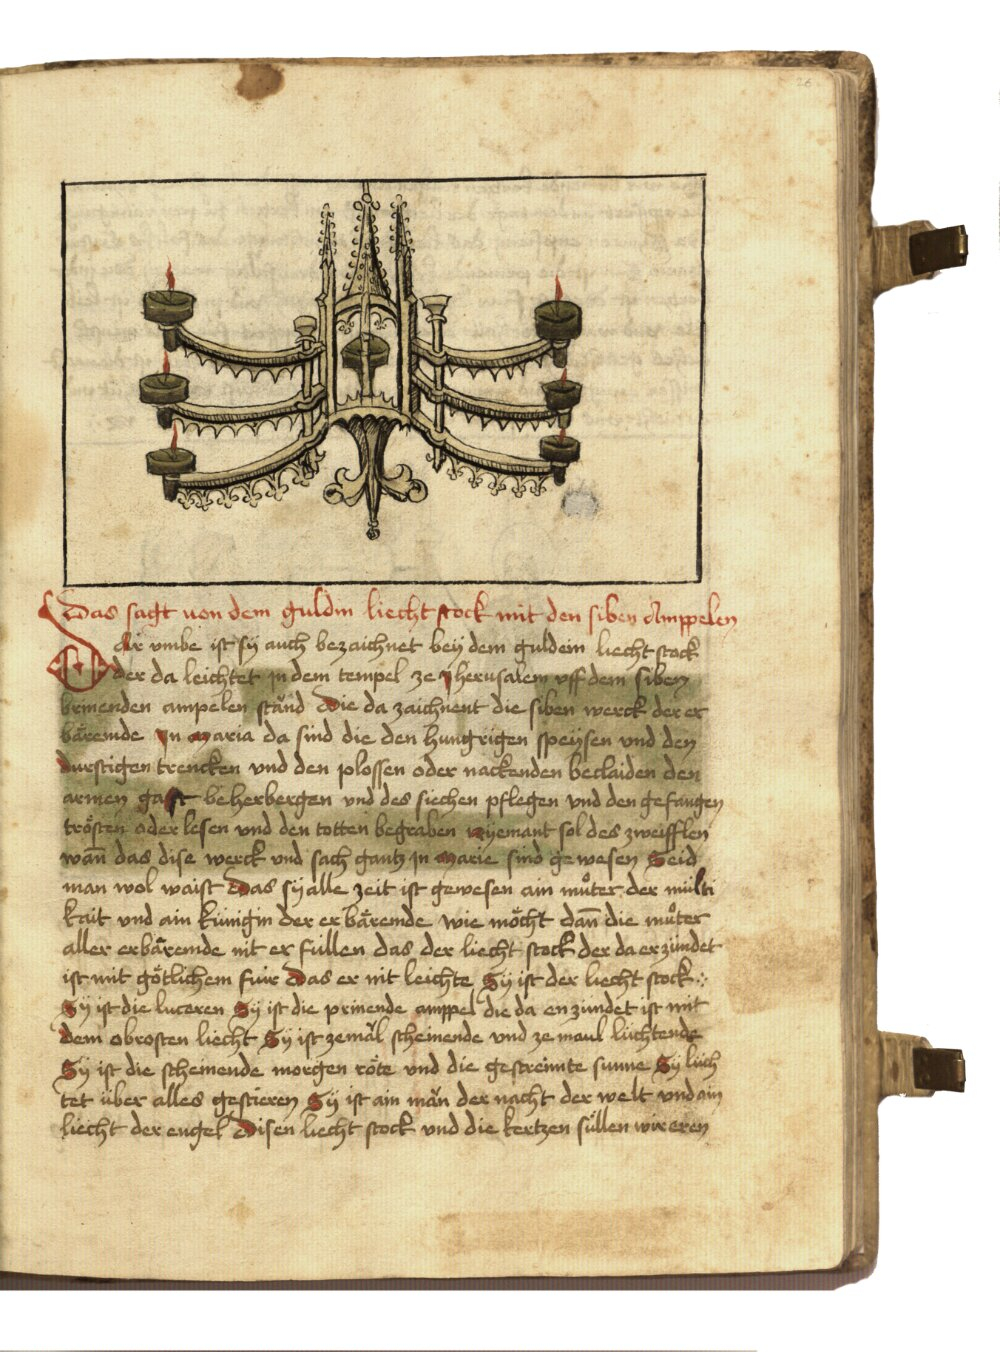 26
Das sagt von dem guldin liecht stock mit den siben Amppelen
Dar vmbe ist sÿ auch bezaichnet beÿ dem guldein liecht stock
der da leichtet in dem tempel ze Jherusalem vff dem siben
brinenden ampelen ständ Die da zaichnent die siben werck der er
bäremde Jn Maria da sind die den hungrigen speÿsen vnd den
durstigen trencken vnd den plossen oder nackenden beclaiden den
armen gast beherbergen vnd des siechen pflegen vnd den gefangen
trösten oder lesen vnd den totten begraben Nÿemant sol des zweifflen
wañ das dise werck vnd sach gantz in Marie sind gewesen Seid
man wol waist Das sÿ alle zeit ist gewesen ain muͦter der milti
kait vnd ain künigin der erbäremde wie möcht dañ die muͦter
aller erbäremde nit erfüllen das der liecht stock der da erzündet
ist mit götlichem für Das er nit leichte Sÿ ist der liecht stock
Sÿ ist die luceren Sÿ ist die prinende amppel die da enzündet ist mit
dem obrosten liecht Sÿ ist zemäl scheinende vnd ze maul lüchtende
Sÿ ist die scheinende morgen röte vnd die gestreimte sunne Sÿ lüch
tet über alles gestieren Sÿ ist ain män der nacht der welt vnd ain
liecht der engel Disen liecht stock vnd die kertzen süllen wir eren